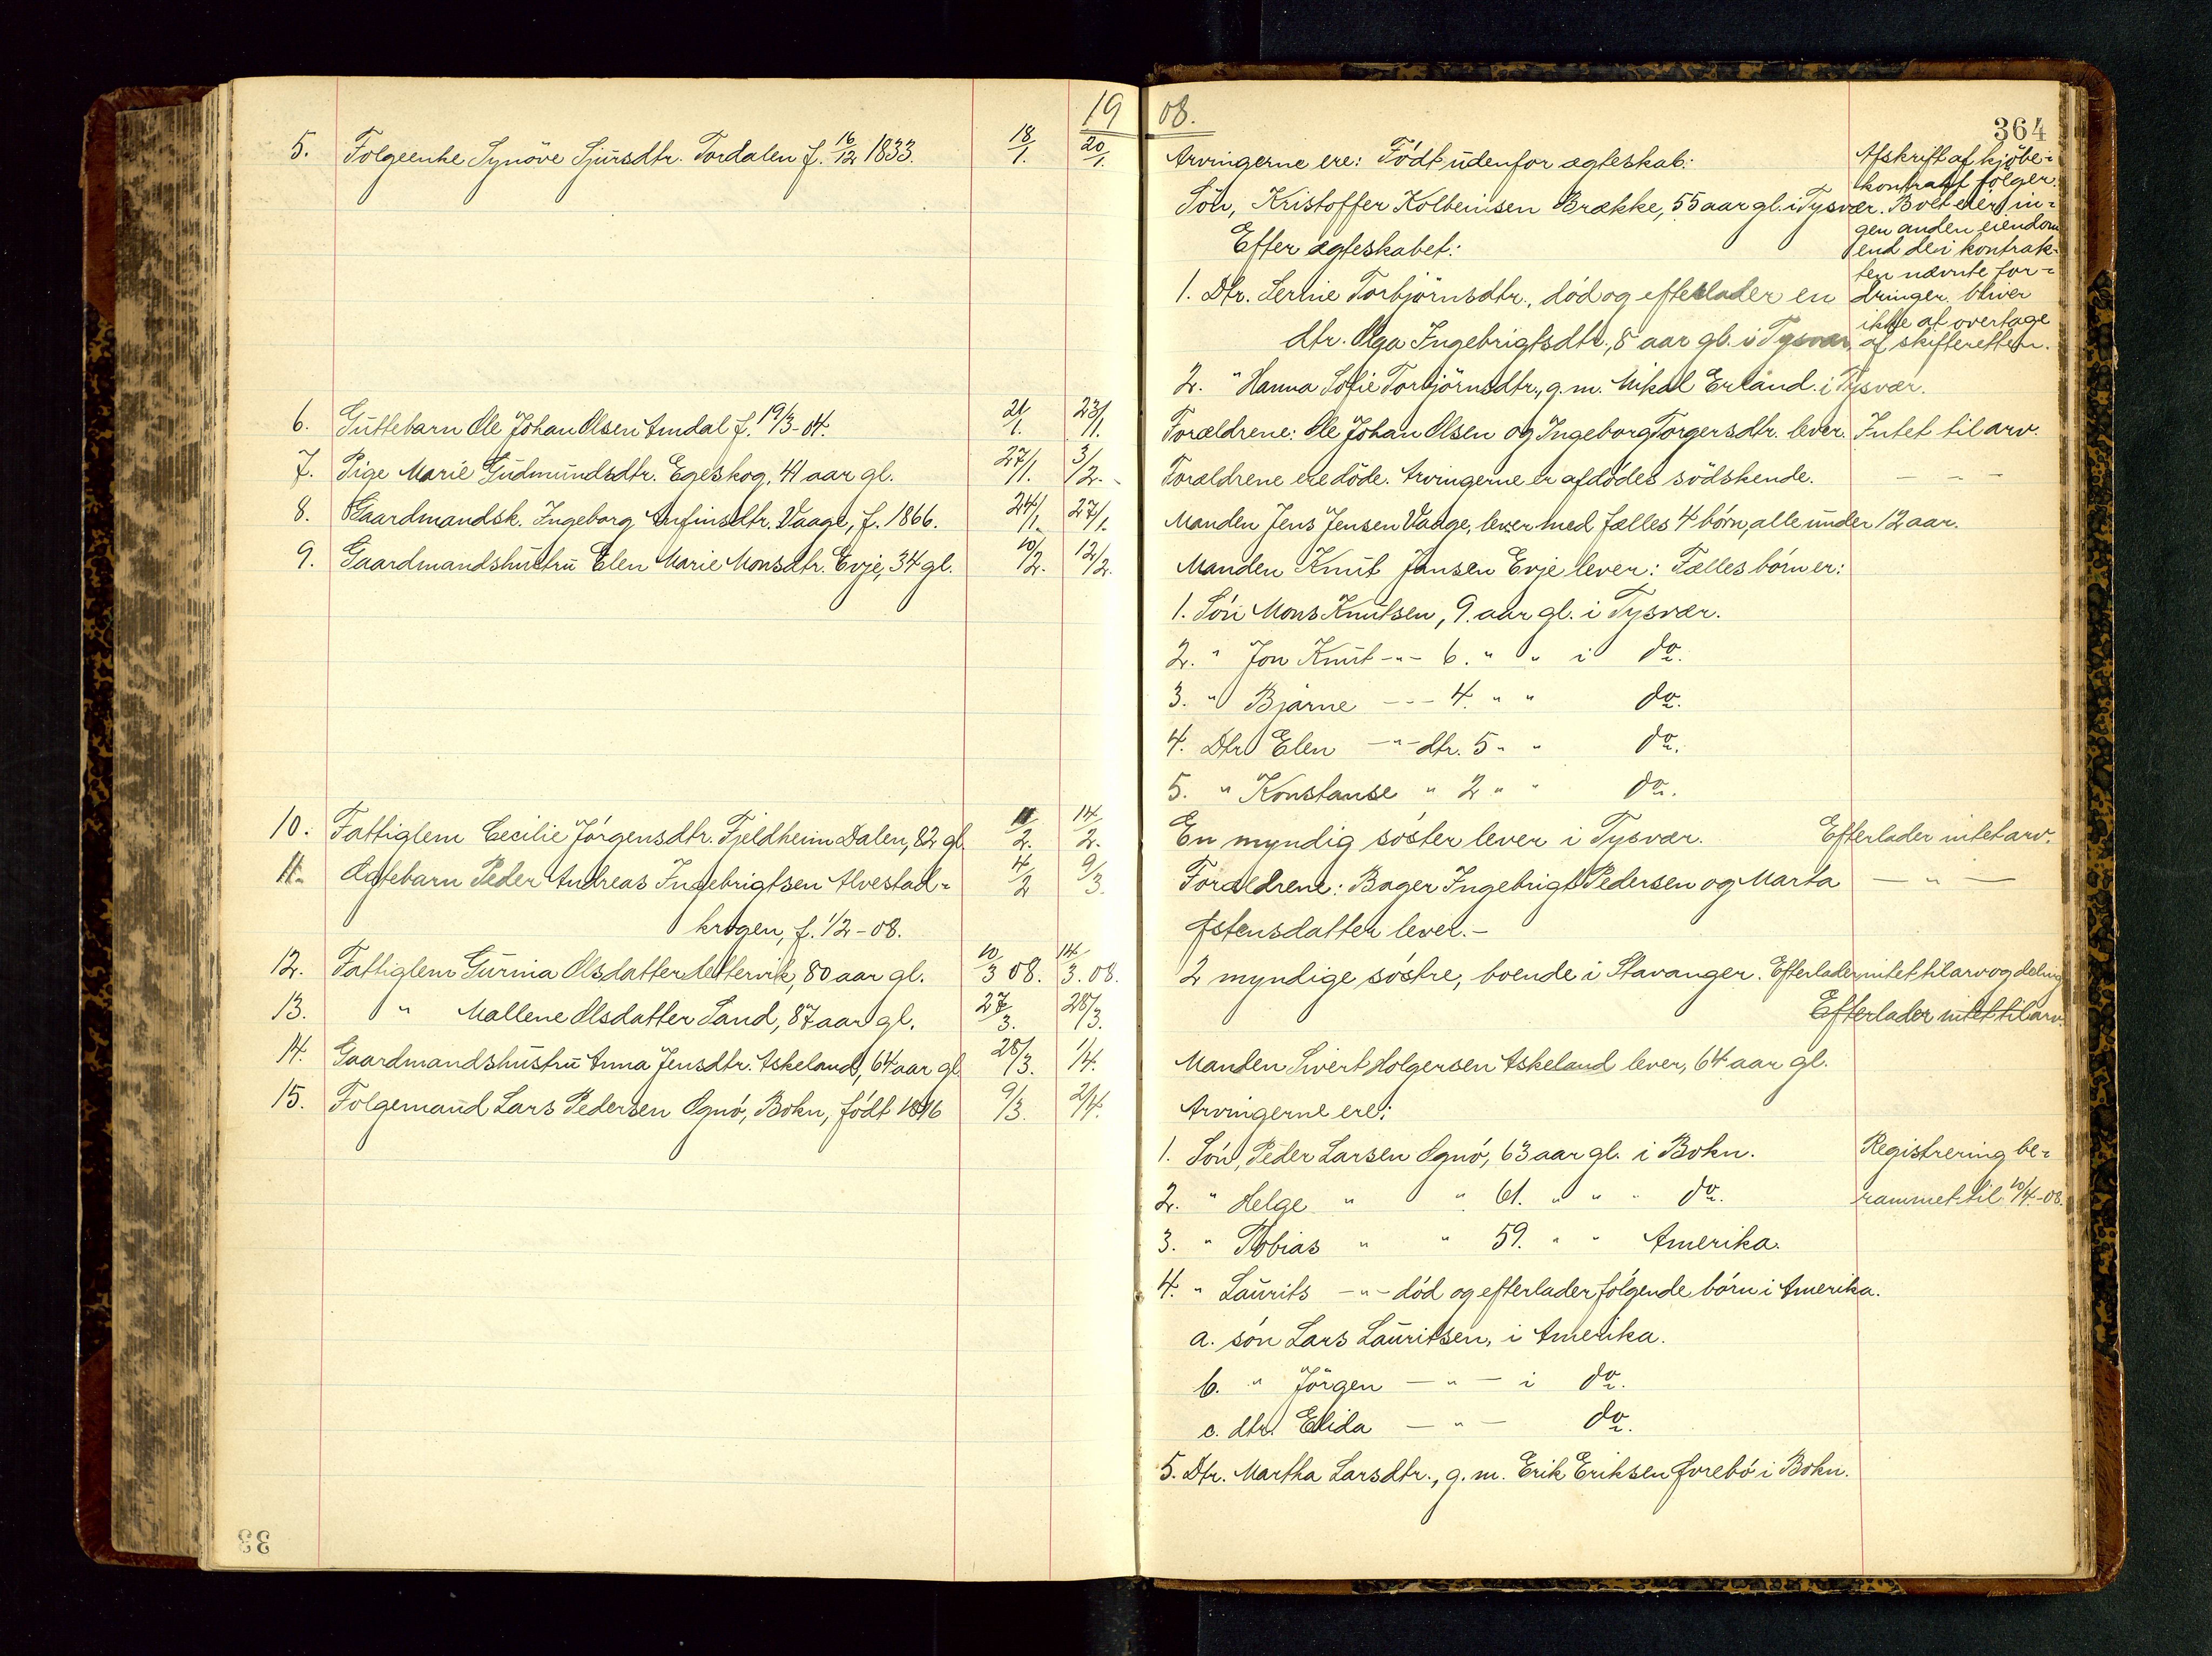 19 08.
364
5. Folgeenke Synöve Sjursdtr. Tordalen f. 16/12 1833. 18/1. 20/1. Arvingerne ere: Födt udenfor ægteskab: Afskrift af kjöbe-
kontrakt fölger.
Sön, Kristoffer Kolbeinsen Brække, 55 aar gl. i Tysvær. Boet eier in-
gen anden eiendom
Efter ægteskabet: end de i kontrak-
ten nævnte for-
1. Dtr. Serine Torbjörnsdtr., död og efterlader en dringer. bliver
ikke at overtage
dtr. Olga Ingebrigtsdtr., 8 aar gl. i Tysvær, af skifteretten.
2. " Hanna Sofie Torbjörnsdtr., g. m. Mikal Erland. i Tysvær.
6. Guttebarn Ole Johan Olsen Amdal f. 19/3-04. 21/1. 23/1. Forældrene: Ole Johan Olsen og Ingeborg Torgersdtr. lever. Intet til arv.
7. Pige Marie Gudmundsdtr. Egeskog, 41 aar gl. 27/1. 3/2. Forældrene ere döde. Arvingerne er afdödes södskende. — " —
8. Gaardmandsk. Ingeborg Anfinsdtr. Vaage, f. 1866. 24/1. 27/1. Manden Jens Jensen Vaage, lever med fælles 4 börn, alle under 12 aar.
9. Gaardmandshustru Elen Marie Monsdtr. Evje, 34 gl. 10/2. 12/2. Manden Knut Jansen Evje lever: Fælles börn er:
1. Sön Mons Knutsen, 9. aar gl. i Tysvær.
2. " Jon Knut -"- 6. " " i do.
3. " Bjarne --- 4. " " do.
4. Dtr. Elen -"- dtr. 5 " " do.
5. " Konstanse " 2 " " do.
10. Fattiglem Cecilie Jörgensdtr. Fjeldheim Dalen, 82 gl. 11/2. 14/2. En myndig söster lever i Tysvær. Efterlader intet arv.
11. Ægtebarn Peder Andreas Ingebrigtsen Alvestad- 4/2 9/3. Forældrene: Bager Ingebrigt Pedersen og Marta — " —
krogen, f. 1/2-08. Östensdatter lever.-
12. Fattiglem Gurina Olsdatter Hettervik, 80 aar gl. 10/3 08. 14/3. 08. 2 myndige söstre, boende i Stavanger. Efterlader intet til arv og deling
13. " Mallene Olsdatter Sand, 87 aar gl. 27/3. 28/3. Efterlader intet til arv.
14. Gaardmandshustru Anna Jensdtr. Askeland, 64 aar gl. 28/3. 1/4. Manden Sivert Holgersen Askeland lever, 64 aar gl.
15. Folgemand Lars Pedersen Ognö, Bokn, födt 1816 9/3. 2/4. Arvingerne ere:
1. Sön, Peder Larsen Ognö, 63 aar gl. i Bokn. Registrering be-
2. " Helge " " 61. " " " do. rammet til 10/4-08.
3. " Tobias " " 59. " " Amerika.
4. " Laurits -"- död og efterlader fölgende börn i Amerika.
a. sön Lars Lauritsen, i Amerika.
b. " Jörgen — " — i do.
c. dtr. Elida — " — do.
5. Dtr. Martha Larsdtr., g. m. Erik Eriksen Övrebö i Bokn.
33